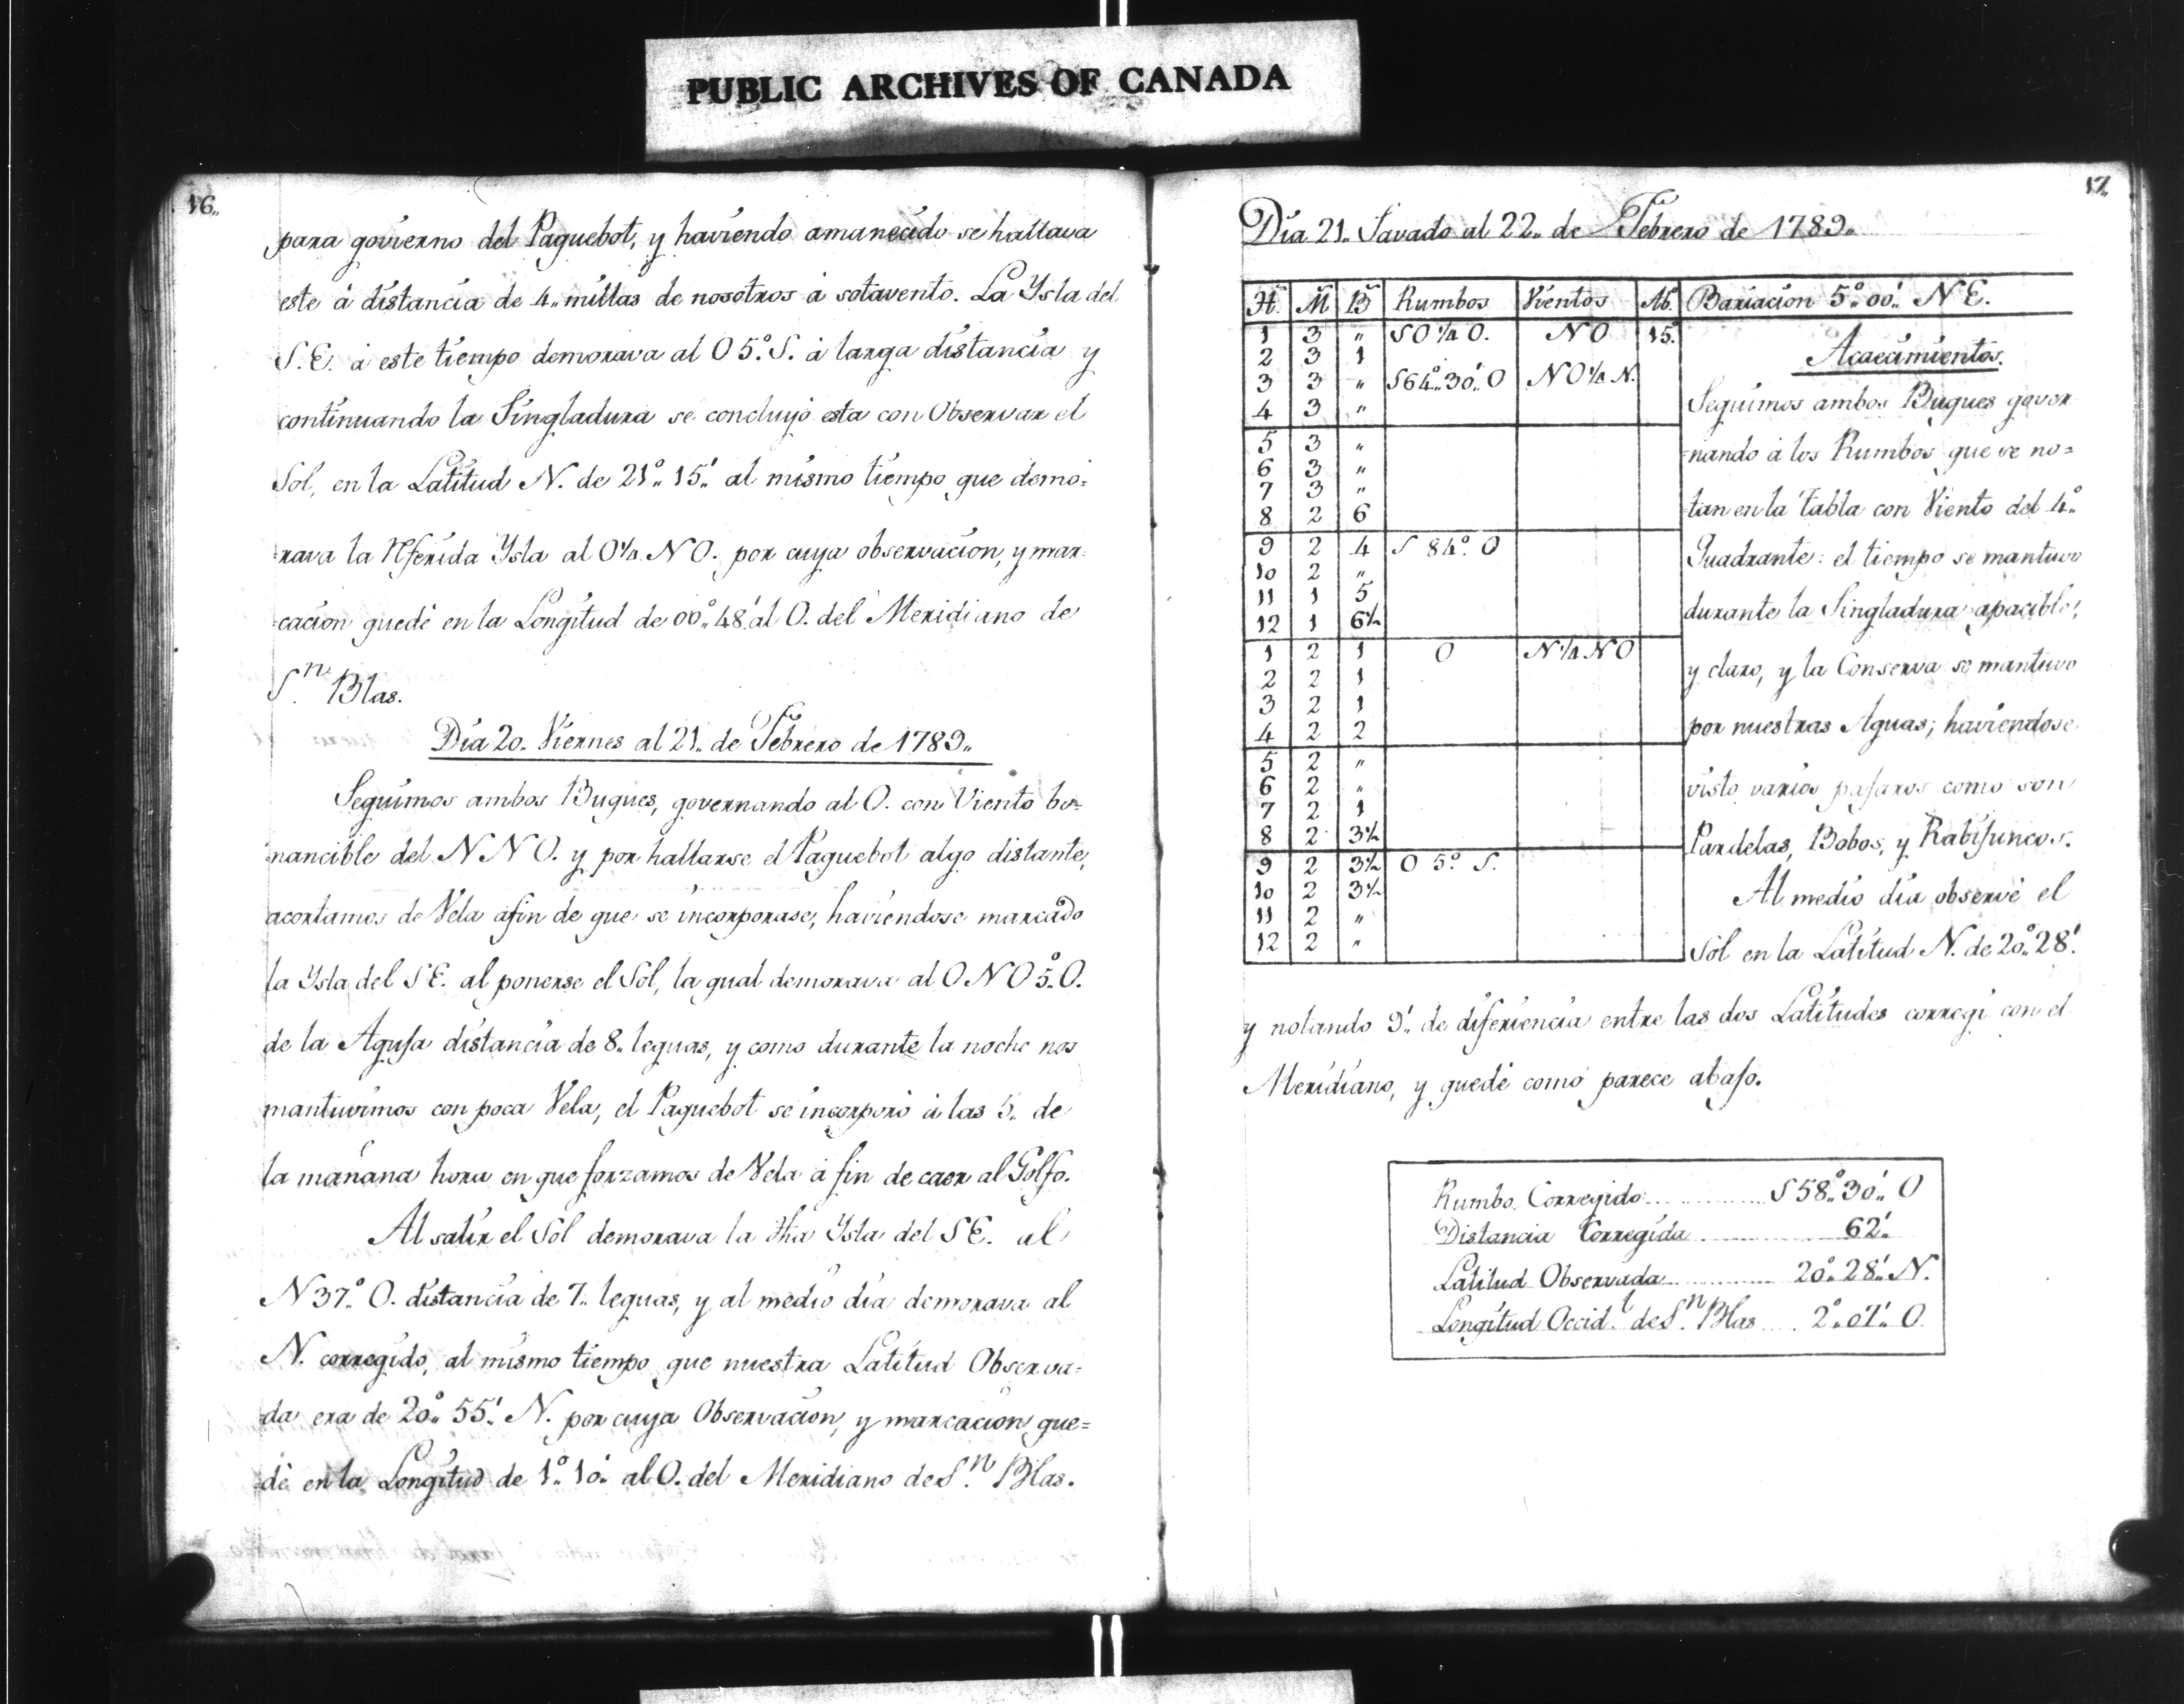 PUBLIC ARCHIVES OF CANADA
16..
para govierno del Paquebot, y haviendo amanecido se hallava
este á distancia de 4,, millas de nosotros á sotavento. La Ysla del
S.E. á este tiempo demorava al O 5.° S. á larga distancia y
continuando la Singladura se concluyó esta con Observar el
Sol, en la Latitud N. de 21°,, 15',, al mismo tiempo que demo=
=rava la Rferida Ysla al O ¼ NO. por cuya observacion, y mar=
=cacion quedé en la Longitud de 00°,, 48' al O. del Meridiano de
S.n Blas.
Dia 20,, Viernes al 21,, de Febrero de 1789,,
Seguimos ambos Buques, governando al O. con Viento bo=
nancible del NNO. y por hallarse el Paquebot algo distante,
acortamos de Vela afin de que se incorporase, haviendose marcado
la Ysla del SE. al ponerse el Sol, la qual demorava al ONO 5.° O.
de la Aguja distancia de 8,, leguas, y como durante la noche nos
mantuvimos con poca Vela, el Paquebot se incorporó á las 5,, de
la mañana hora en que forzamos de Vela á fin de caer al Golfo.
Al salir el Sol demorava la dha Ysla del SE. al
N 37.° O. distancia de 7,, leguas, y al medio dia demorava al
N. corregido, al mismo tiempo que nuestra Latitud Observa=
=da era de 20°,, 55' N. por cuya Observacion, y marcacion que=
=dé en la Longitud de 1°,, 10' al O. del Meridiano de S.n Blas.
17,,
Dia 21,, Savado al 22,, de Febrero de 1789,,
H. M B Rumbos Vientos Ab. Bariacion 5°,, 00',, NE.
1 3 ,, SO ¼ O. NO 15.°
2 3 1
3 3 ,, S 64°,, 30',, O NO ¼ N.
4 3 ,,
5 3 ,,
6 3 ,,
7 3 ,,
8 2 6
9 2 4 S 84.° O
10 2 ,,
11 1 5
12 1 6½
1 2 1 O N ¼ NO
2 2 1
3 2 1
4 2 2
5 2 ,,
6 2 ,,
7 2 1
8 2 3½
9 2 3½ O 5.° S.
10 2 3½
11 2 ,,
12 2 ,,
Acaecimientos.
Seguimos ambos Buques gover
=nando á los Rumbos que se no=
tan en la Tabla con Viento del 4.°
Quadrante: el tiempo se mantuvo
durante la Singladura apacible,
y claro, y la Conserva se mantuvo
por nuestras Aguas; haviendose
visto varios pajaros como son
Pardelas, Bobos, y Rabijuncos.
Al medio dia observé el
Sol en la Latitud N. de 20°,, 28'.
y notando 9',, de diferiencia entre las dos Latitudes corregi con el
Meridiano, y quedé como parece abajo.
Rumbo Corregido ........ S 58°,, 30',, O
Distancia Corregida ........ 62',,
Latitud Observada ........ 20°,, 28',, N.
Longitud Occid.l de S.n Blas .... 2°,, 07',, O